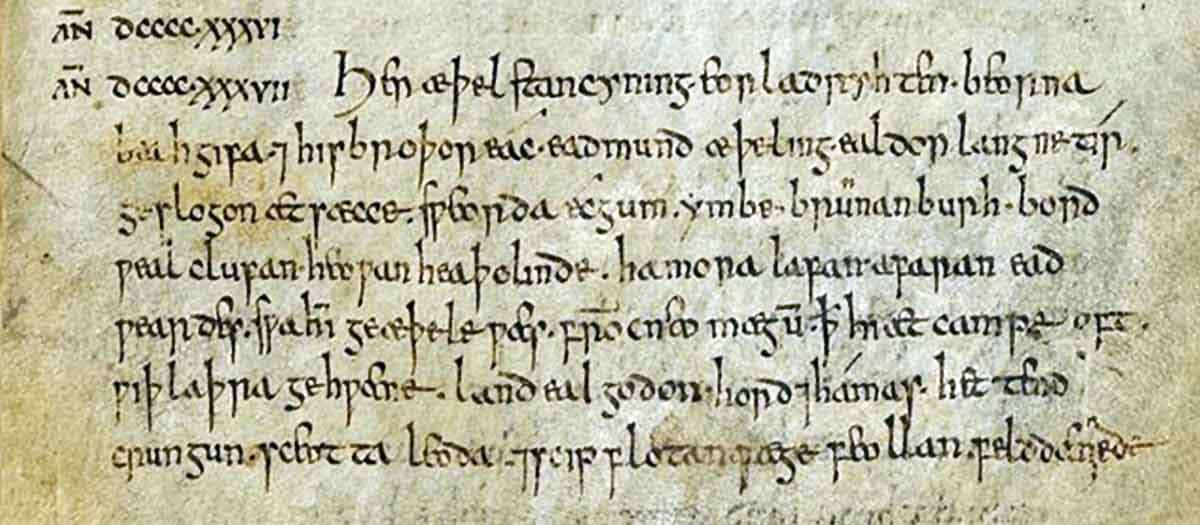 AN̄ DCCCC·XXXVI
AN̄ DCCCC·XXXVII Her æþelstan cyning· eorla dryhten· beorna
beahgifa· ⁊ his broþor eac· eadmund æþeling· ealdor langne tír·
geslogon æt sæcce· sƿeorda écgum· ymbe brunanburh· bord
ƿeal clufan· heoƿan heaþolinde· hamora lafan afaran ead
ƿeardes· sƿa him geæþele ƿæs· frō cneo mægū· ꝥ hi æt campe oft·
ƿiþ laþra gehƿæne· land ealgodon· hord ⁊ hámas· hettend
crungun· sceotta leoda· ⁊ scip flotan fæge feollan· feld dænnede